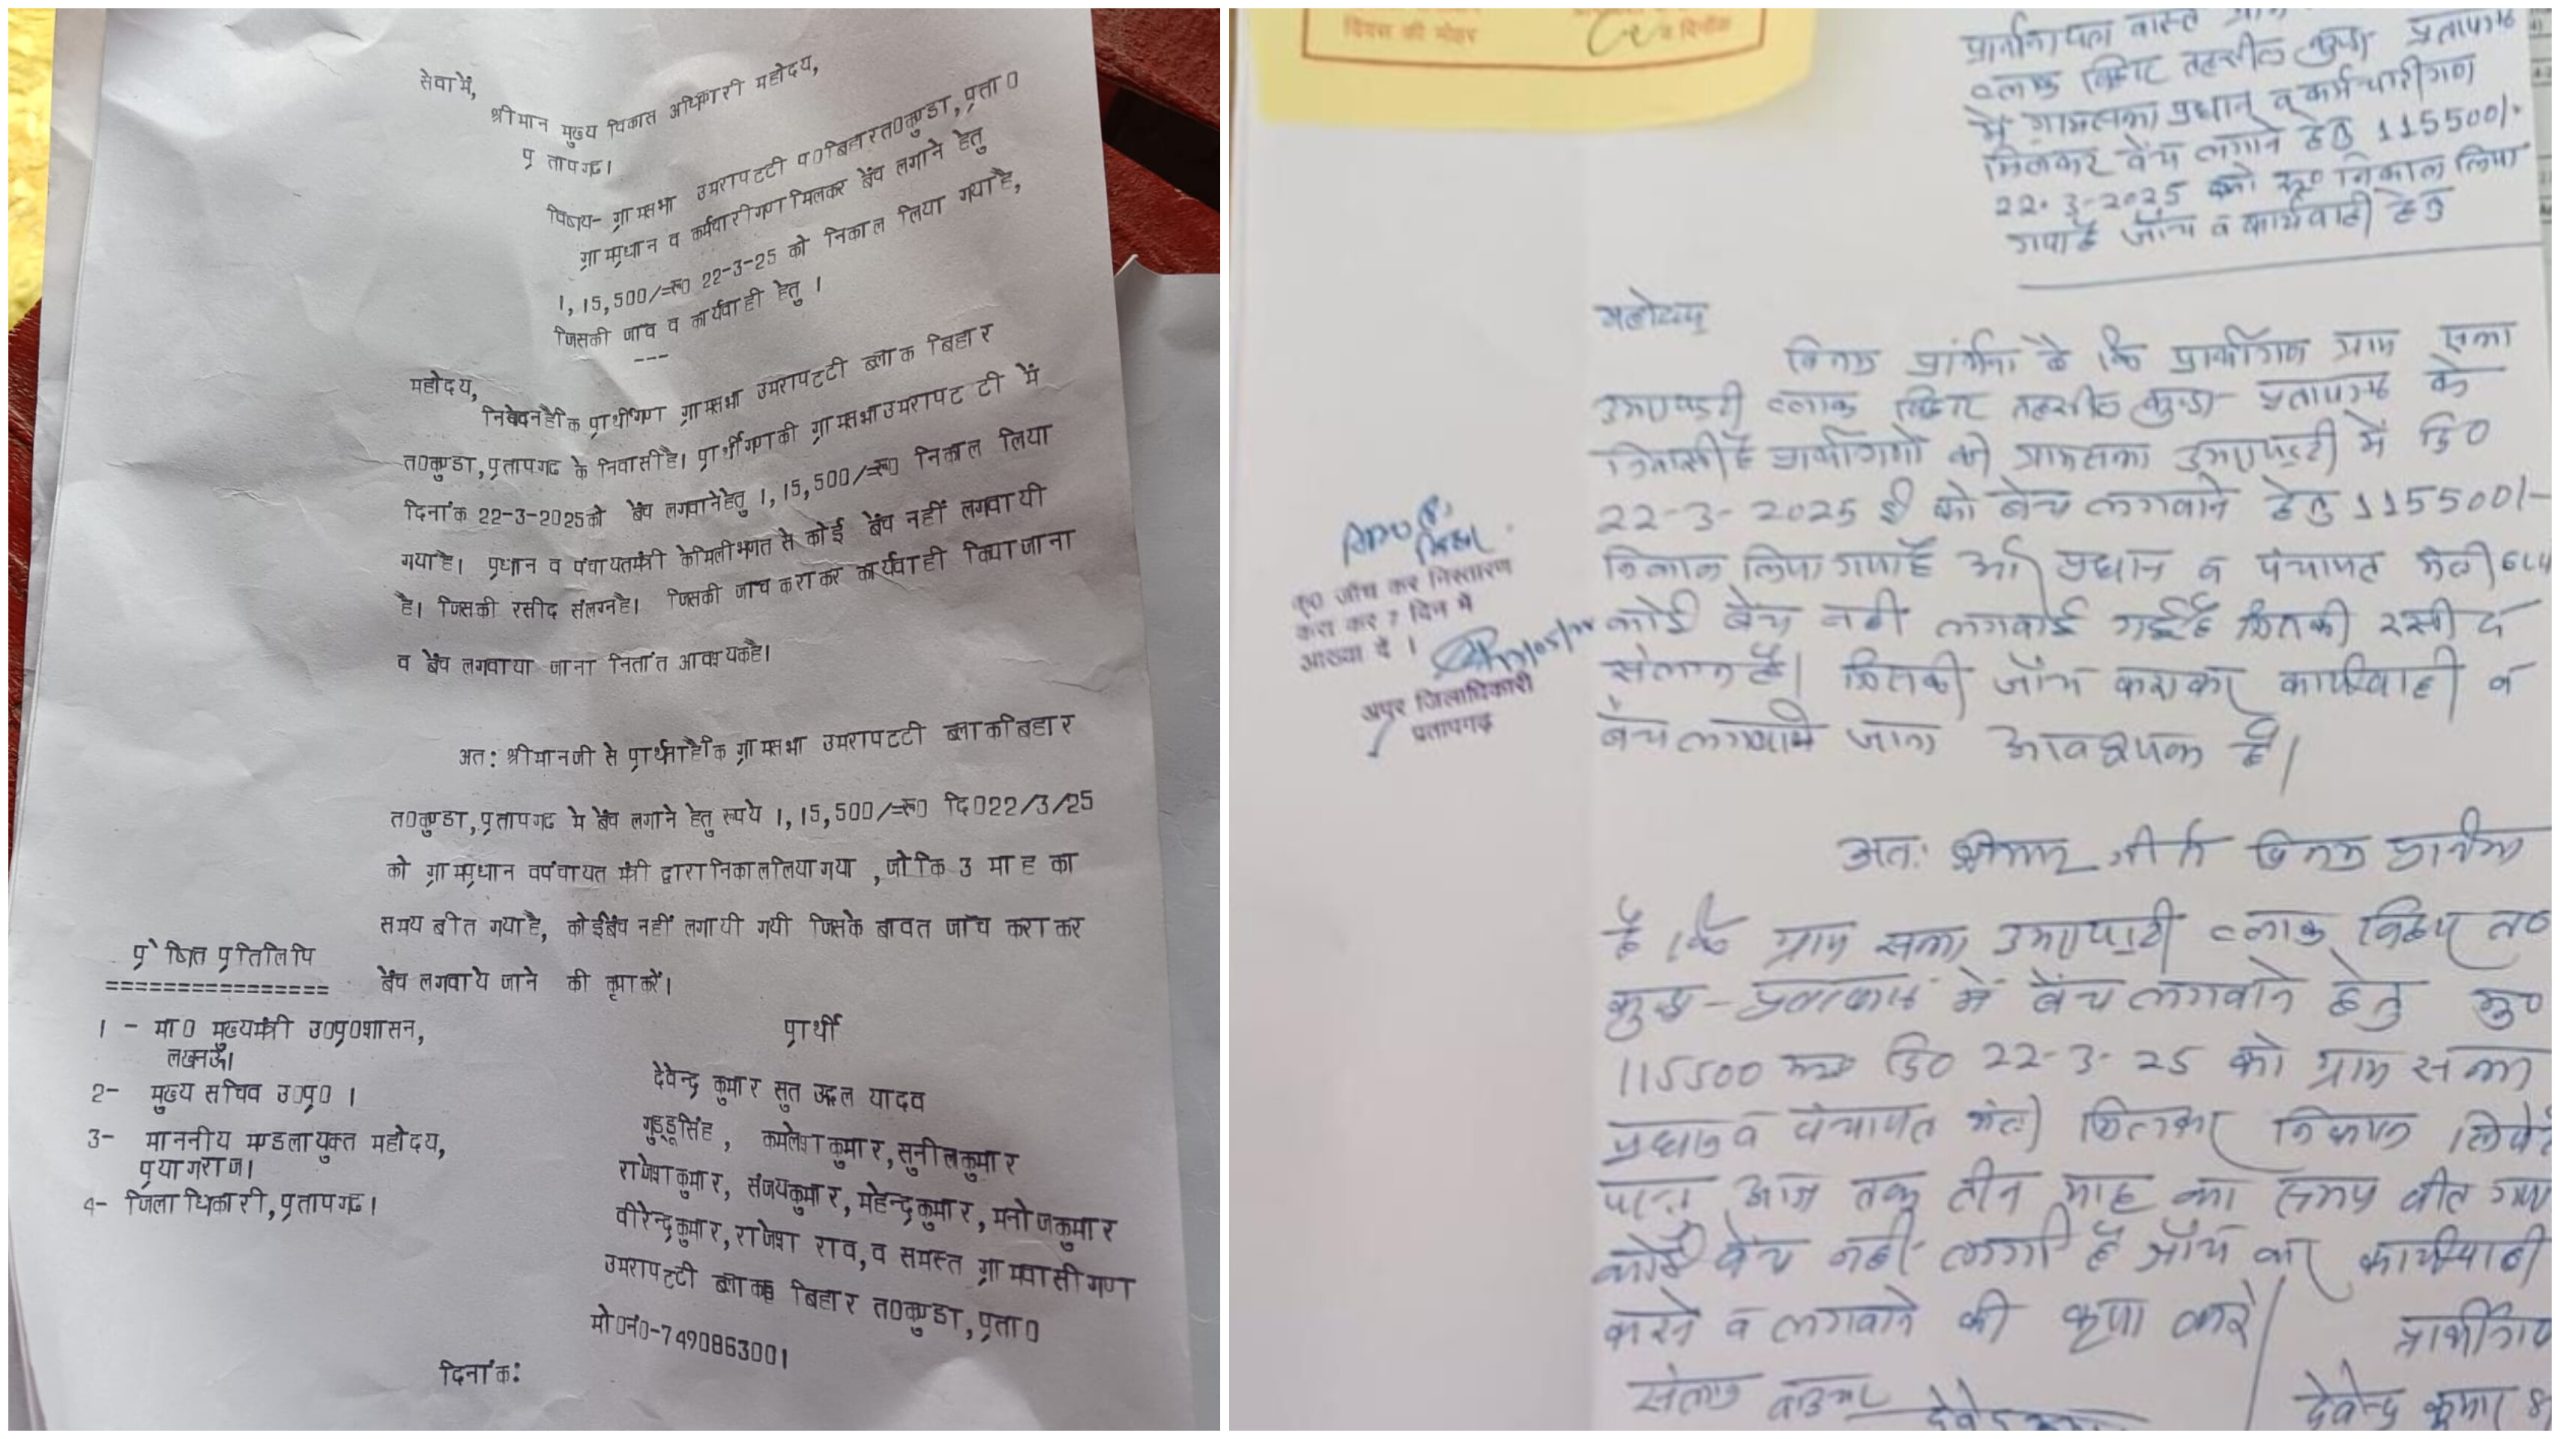 सेवा में,
श्रीमान मुख्य विकास अधिकारी महोदय,
प्रतापगढ।
विषय- ग्रामसभा उमरापटटी प०बिहारत०कुण्डा,प्रता०
ग्रामप्रधान व कर्मचारीगण मिलकर बेंच लगाने हेतु
1,15,500/=रू० 22-3-25 को निकाल लिया गयाहै,
जिसकी जाच व कार्यवाही हेतु ।
---
महोदय,
निवेदनहैकि प्रार्थीगण ग्रामसभा उमरापटटी ब्लाक बिहार
त०कुण्डा,प्रतापगढ के निवासीहै। प्रार्थीगणकी ग्रामसभाउमरापटटी में
दिनांक 22-3-2025को बेंच लगवानेहेतु 1,15,500/=रू० निकाल लिया
गयाहै। प्रधान व पंचायतमंत्री केमिलीभगत से कोई बेंच नहीं लगवायी
है। जिसकी रसीद संलग्नहै। जिसकी जाच कराकर कार्यवाही कियाजाना
व बेंच लगवाया जाना नितांत आवश्यकहै।
अत: श्रीमानजी से प्रार्थनाहैकि ग्रामसभा उमरापटटी ब्लाकबिहार
त०कुण्डा,प्रतापगढ मे बेंच लगाने हेतु रूपये 1,15,500/=रू० दि०22/3/25
को ग्रामप्रधान वपंचायत मंत्री द्वारानिकाललियागया ,जोकि 3 माह का
समय बीत गयाहै, कोईबेंच नहीं लगायी गयी जिसके बावत जाँच कराकर
बेंच लगवाये जाने की कृपा करें।
प्रेषित प्रतिलिपि
================
1 - मा० मुख्यमंत्री उ०प्र०शासन,
लखनऊ।
2- मुख्य सचिव उ०प्र० ।
3- माननीय मण्डलायुक्त महोदय,
प्रयागराज।
4- जिलाधिकारी,प्रतापगढ।
प्रार्थी
देवेन्द्र कुमार सुत उद्धल यादव
गुड्डूसिंह, कमलेशकुमार,सुनीलकुमार
राजेशकुमार, संजयकुमार,महेन्द्रकुमार,मनोजकुमार
वीरेन्द्रकुमार,राजेश राव,व समस्त ग्रामवासीगण
उमरापटटी ब्लाक बिहार त०कुण्डा,प्रता०
मो०नं०-7490863001
दिनांक:
दिवस की मोहर
व दिनाँक
प्रार्थनापत्र वास्ते
ब्लाक बिहार तहसील कुण्डा प्रतापगढ
में ग्रामसभा प्रधान व कर्मचारीगण
मिलकर बेंच लगाने हेतु 115500/-
22-3-2025 को रू० निकाल लिया
गया है जाँच व कार्यवाही हेतु
महोदय
विनम्र प्रार्थना है कि प्रार्थीगण ग्राम सभा
उमरापट्टी ब्लाक बिहार तहसील कुण्डा प्रतापगढ के
निवासी है प्रार्थीगणों की ग्रामसभा उमरापट्टी में दि०
22-3-2025 ई को बेन्च लगवाने हेतु 115500/-
निकाल लिया गया है और प्रधान व पंचायत मंत्री
कोई बेंच नही लगवाई गई है जिसकी रसीद
संलग्न है। जिसकी जाँच कराकर कार्यवाही व
बेंच लगवाये जाना आवश्यक है।
कृ० जाँच कर निस्तारण
करा कर 7 दिन में
आख्या दें ।
अपर जिलाधिकारी
प्रतापगढ़
अत: श्रीमान जी से विनम्र प्रार्थना
है कि ग्राम सभा उमरापट्टी ब्लाक बिहार त०
कुण्डा - प्रतापगढ में बेंच लगवाने हेतु रू०
115500 दि० 22-3-25 को ग्राम सभा
प्रधान व पंचायत मंत्री मिलकर निकाल लिये
आज तक तीन माह का समय बीत गया
कोई बेंच नही लगी है जाँच कर कार्यवाही
करने व लगवाने की कृपा करें। प्रार्थीगण
संलग्न
देवेन्द्र कुमार